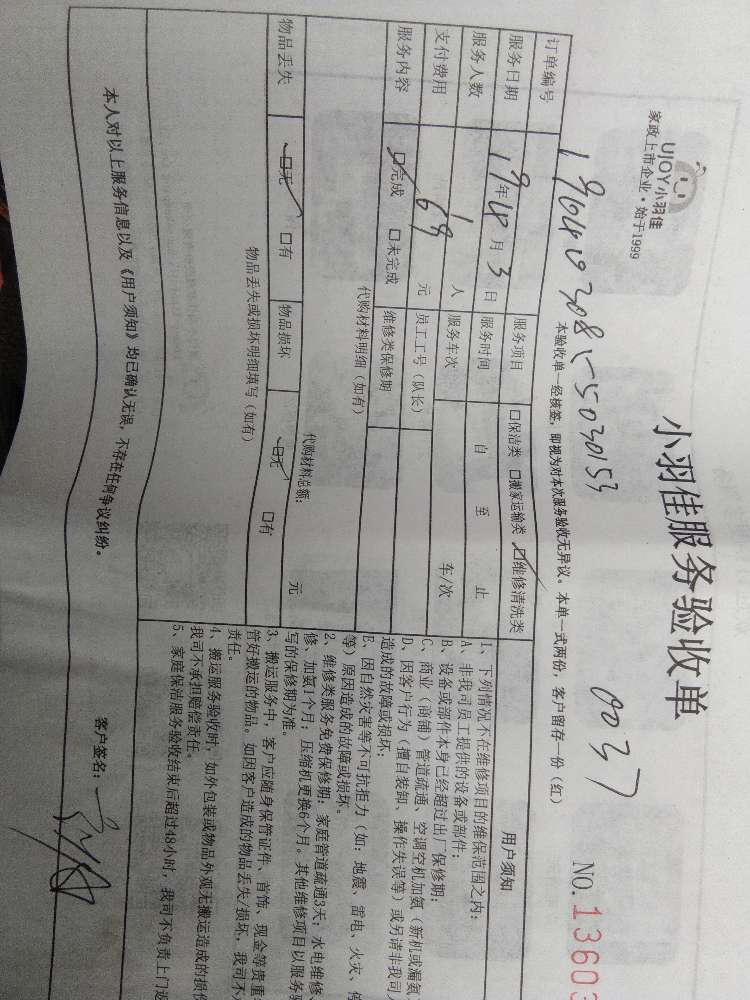 UJOY小羽佳
家政上市企业·始于1999
小羽佳服务验收单
0037
NO.13603
本验收单一经核签，即视为对本次服务验收无异议。本单一式两份，客户留存一份（红）
订单编号
服务日期 19年4月3日 服务项目 口保洁类 口搬家运输类 口维修清洗类
服务人数 1人 服务时间 自 至 止
支付费用 69元 服务车次 车/次
员工工号（队长）
服务内容 口完成 口未完成 维修类保修期
代购材料明细（如有）
代购材料总额： 元
物品丢失 口无 口有 物品损坏 口无 口有
物品丢失或损坏明细填写（如有）
用户须知
1、下列情况不在维修项目的维保范围之内：
A、非我司员工提供的设备或部件；
B、设备或部件本身已经超过出厂保修期；
C、商业（商铺）管道疏通、空调空机加氨（新机或漏氨
D、因客户行为（擅自装卸、操作失误等）或另请非我司人
造成的故障或损坏；
E、因自然灾害等不可抗拒力（如：地震、雷电、火灾、
等）原因造成的故障或损坏。
2、维修类服务免费保修期：家庭管道疏通3天；水电维修、
修、加氨1个月；压缩机更换6个月。其他维修项目以服务
写的保修期为准。
3、搬运服务中，客户应随身保管证件、首饰、现金等贵重
管好搬运的物品。如因客户造成的物品丢失/损坏，我司不
责任。
4、搬运服务验收时，如外包装或物品外观无搬运造成的损
我司不承担赔偿责任。
5、家庭保洁服务验收结束后超过48小时，我司不负责上门返
本人对以上服务信息以及《用户须知》均已确认无误，不存在任何争议纠纷。
客户签名：